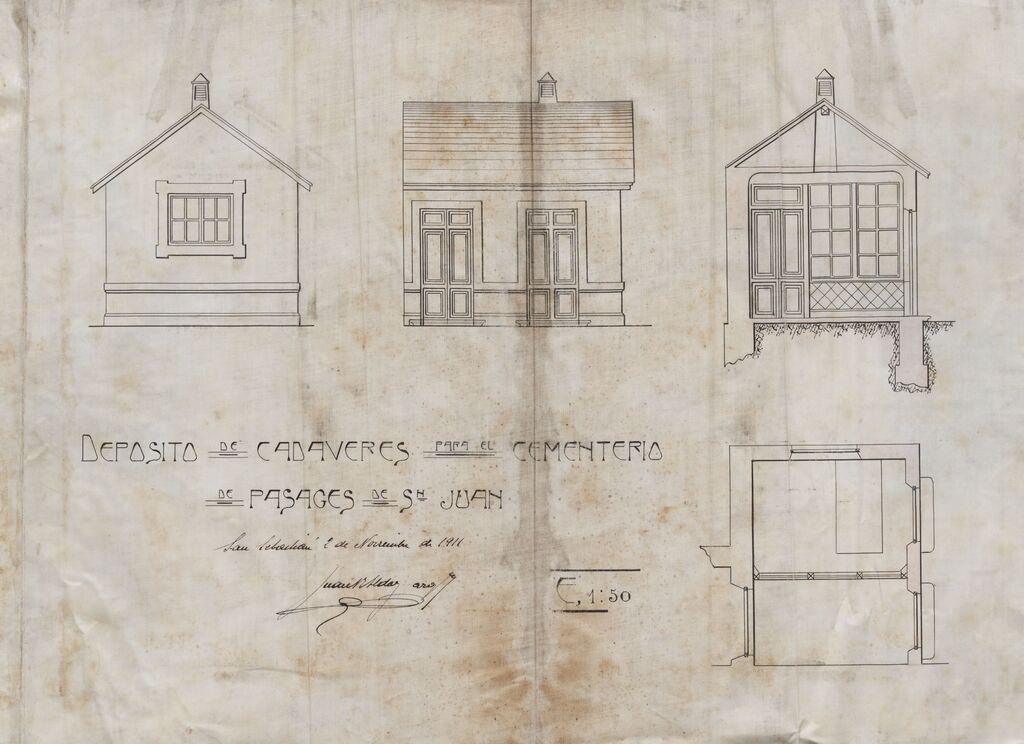 DEPOSITO DE CADAVERES PARA EL CEMENTERIO
DE PASAGES DE Sn JUAN
San Sebastian 2 de Noviembre de 1911
Juan R Alday
E, 1:50